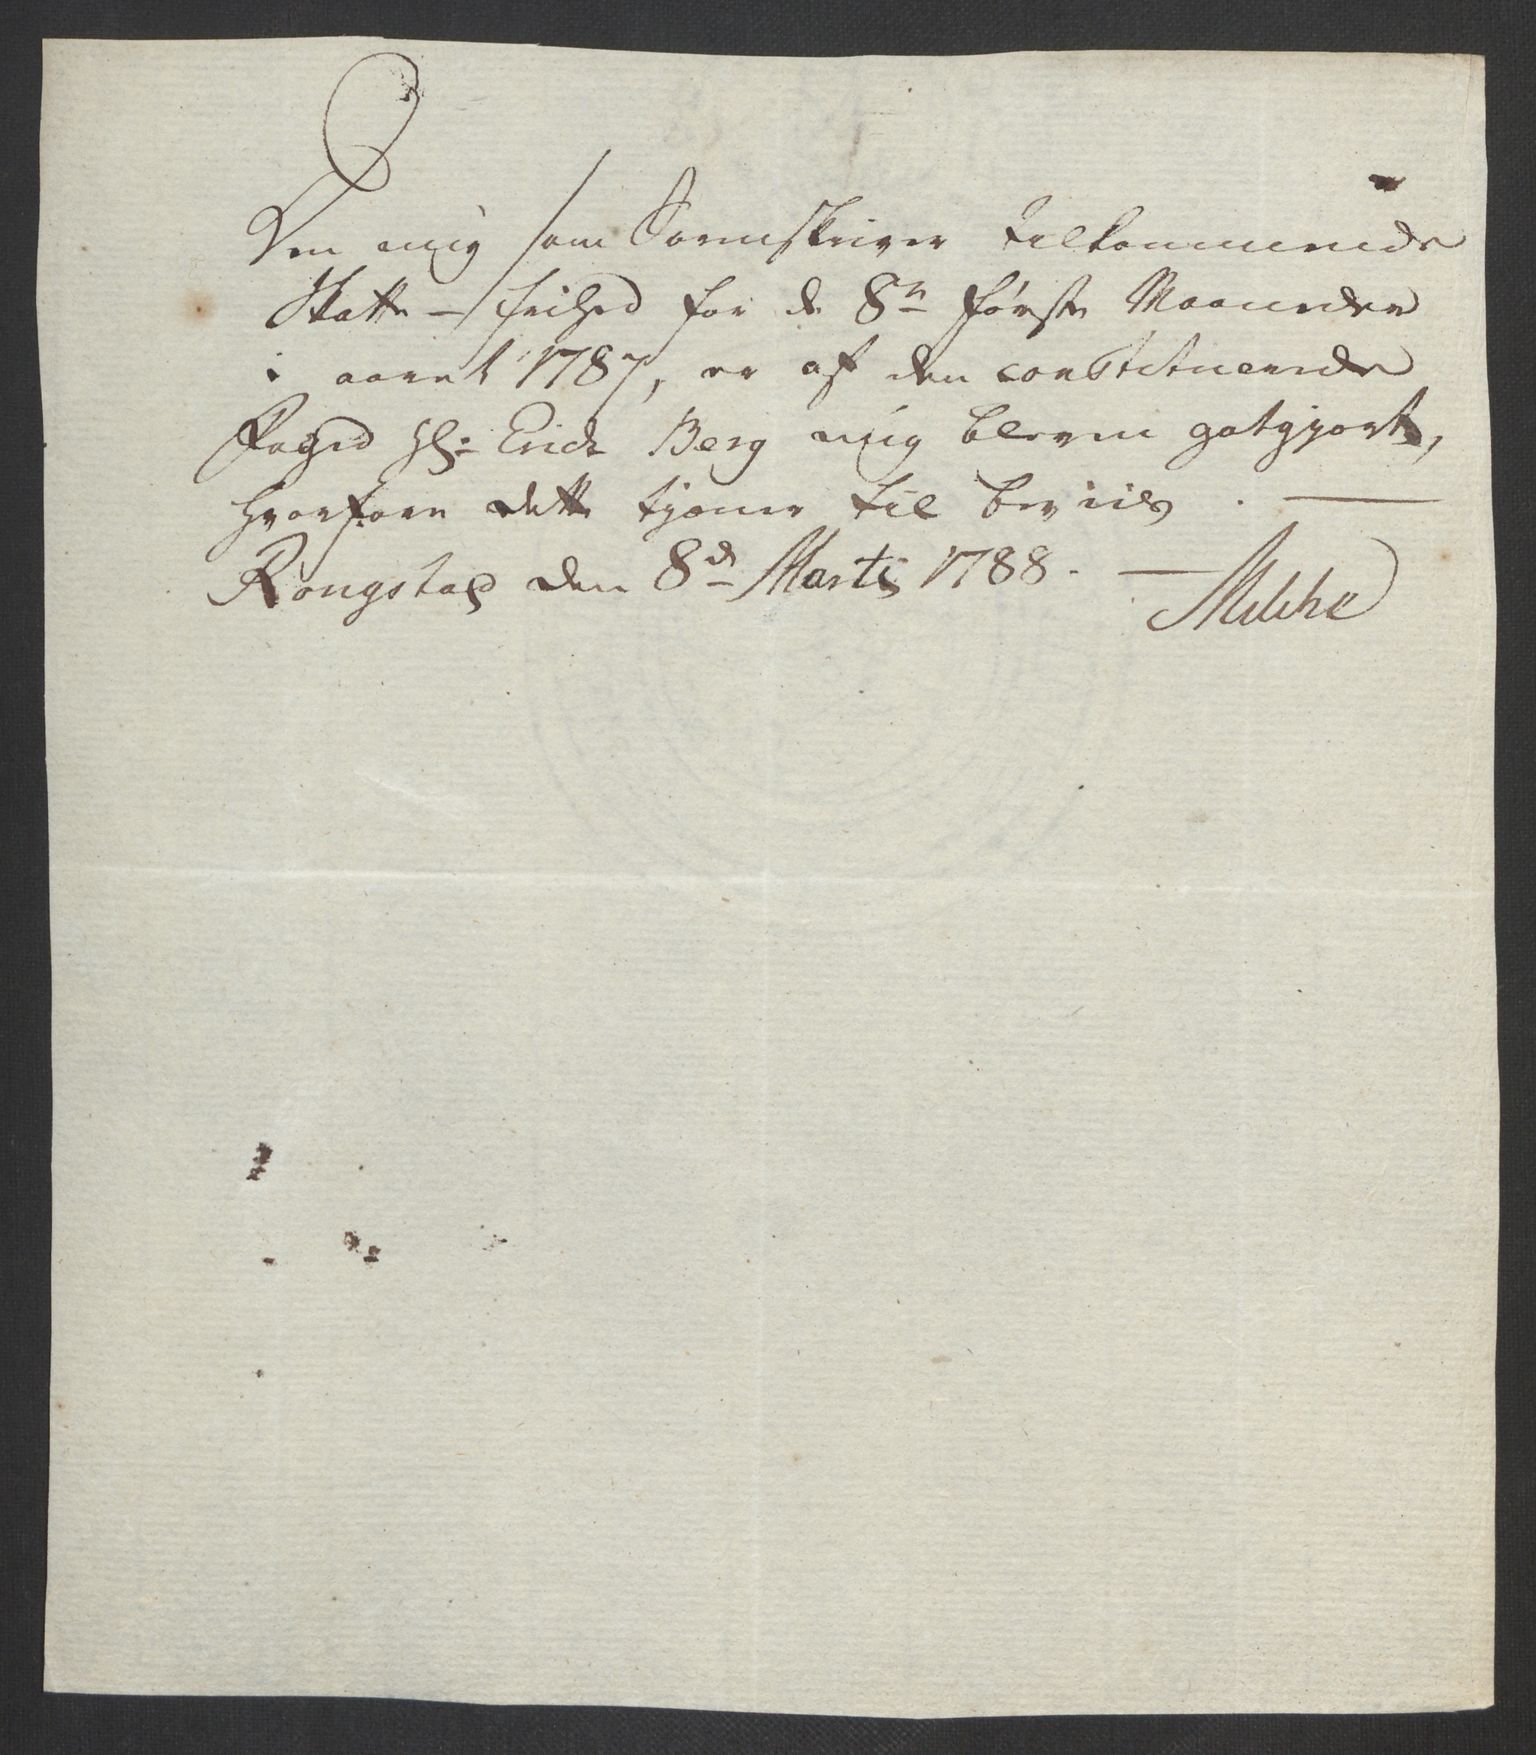 Den mig som Sorenskriver tilkommende
Skatte-frihed for de 8te første Maaneder
i aaret 1787, er af den constituerede
Foged Hr: Erich Berg mig bleven gotgjort,
hvorfore dette tjener til beviis. —
Rongstad den 8de Marti 1788. —